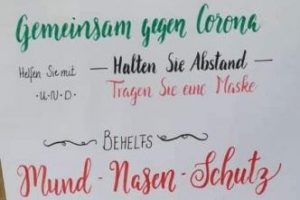 Gemeinsam gegen Corona
Helfen Sie mit — Halten Sie Abstand —
·U·N·D· Tragen Sie eine Maske
BEHELFS
Mund - Nasen - Schutz